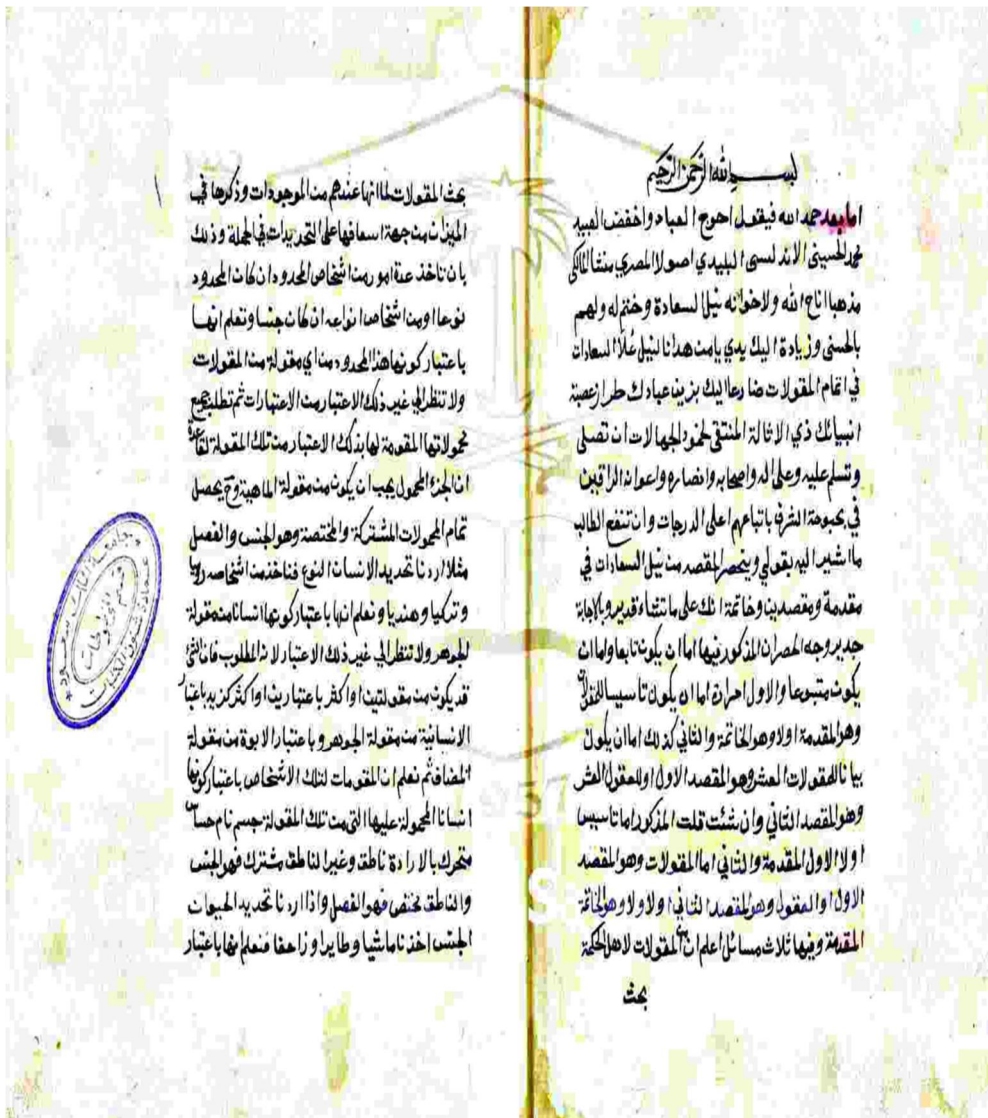 بسم الله الرحمن الرحيم
اما بعد حمد الله فيقول احوج العباد واخفض العبيد
محمد الحسيني الاندلسي البليدي اصولا المصري منشأ المالكي
مذهبا اناح الله ولاخوانه نيل السعادة وختم له ولهم
بالحسنى وزيادة اليك يدي يا من هدانا لنيل علا السعادات
في اتمام المقولات ضارعا اليك بزين عبادك طراز عصبة
انبيائك ذي الاثالة المنتقى لخمود الجهالات ان تصلى
وتسلم عليه وعلى اله واصحابه وانصاره واعوانه الراقين
في بحبوحة الشرف باتباعهم اعلى الدرجات وان تنفع الطالب
ما اشير اليه بقولي وينحصر المقصد من نيل السعادات في
مقدمة ومقصدين وخاتمة انك على ما تشاء قدير وبالاجابة
جدير وجه الحصر ان المذكور فيها اما ان يكون تابعا واما ان
يكون متبوعا والاول امران اما ان يكون تاسيسا للمقولات
وهو المقدمة اولا وهو الخاتمة والثاني كذلك اما ان يكون
بيانا للمقولات العشر وهو المقصد الاول او للعقول العشر
وهو المقصد الثاني وان شئت قلت المذكور اما تاسيس
اولا الاول المقدمة والثاني اما المقولات وهو المقصد
الاول او العقول وهو المقصد الثاني اولا ولا وهو الخاتمة
المقدمة وفيها ثلاث مسائل اعلم ان المقولات لاهل الحكمة
بحث
١
بحث المقولات لما انها عندهم من الموجودات وذكرها في
الميزان من جهة اسعافها على التحديدات في الجملة وذلك
بان تاخذ عدة امور من اشخاص المحدود ان كان المحدود
نوعا او من اشخاص انواعه ان كان جنسا وتعلم انها
باعتبار كونها هذا المحدود من اي مقولة من المقولات
ولا تنظر الى غير ذلك الاعتبار من الاعتبارات ثم تطلب جميع
محمولاتها المقومة لها بذلك الاعتبار من تلك المقولة لقاعدة
ان الجزء المحمول يجب ان يكون من مقولة الماهية وح يحصل
تمام المحمولات المشتركة والمختصة وهو الجنس والفصل
مثلا اردنا تحديد الانسان النوع فناخذ من اشخاصه روميا
وتركيا وهنديا ونعلم انها باعتبار كونها انسانا من مقولة
الجوهر ولا تنظر الى غير ذلك الاعتبار لانه المطلوب فان الشئ
قد يكون من مقولتين او اكثر باعتبارين او اكثر كزيد باعتبار
الانسانية من مقولة الجوهر وباعتبار الابوة من مقولة
المضاف ثم نعلم ان المقومات لتلك الاشخاص باعتبار كونها
انسانا المحمولة عليها التي من تلك المقولة جسم نام حساس
متحرك بالارادة ناطق وغير الناطق مشترك فهو الجنس
والناطق مختص فهو الفصل واذا اردنا تحديد الحيوان
الجنس اخذنا ماشيا وطايرا وزاحفا فنعلم انها باعتبار
جامعة الملك سعود
عمادة شئون المكتبات
قسم المخطوطات